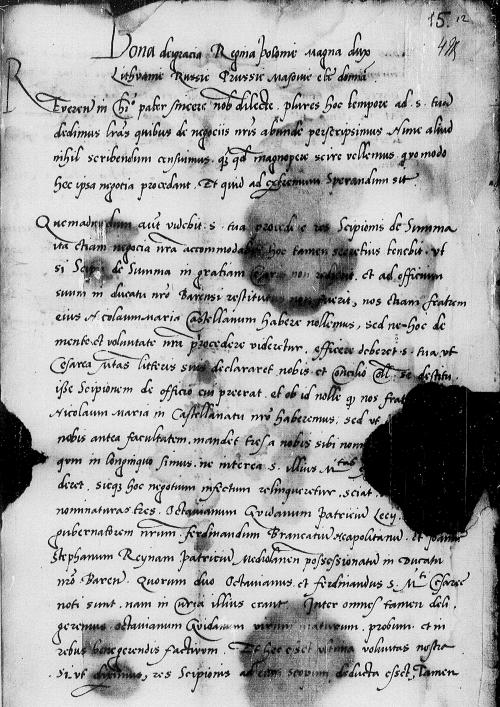 15 12
Bona dei gracia Regina polonie magna dux
Lithvanie Russie Prussie Masovie etc domina
Reveren in Chro pater sincere nob dilecte. plures hoc tempore ad s. tuam
dedimus lras quibus de negociis nris abunde perscripsimus Nunc aliud
nihil scribendum censuimus. qm qd magnopere scire vellemus quo modo
hec ipsa negotia procedant. Et quid ad extremum sperandum sit
Quemadmodum aut videbit s. tua procedere res Scipionis de Summa
ita etiam negocia nra accommodabit hoc tamen secretius tenebit. vt
si Scipio de Summa in gratiam et ad officium
suum in ducatu nro Barensi restitutus fuerit, nos etiam fratrem
eius Nicolaum Maria Castellanum habere nollemus, sed ne hoc de
mente et voluntate nra procedere videretur, efficere deberet s. tua vt
Cesarea Mtas litteris suis declararet nobis et Concilio se destitu
isse Scipionem de officio cui preerat. et ob id nolle qm nos frat
Nicolaum Maria in Castellanatu nro haberemus. sed vt
nobis antea facultatem. mandet tres a nobis sibi nom
qum in longinquo simus. ne interea s. illius Mtas
deret, sicqz hoc negotium infectum relinqueretur. sciat
nominaturas tres. Octavianum Guidanum patricium Lecy
gubernatorem nrum. ferdinandum Brancatium Neapolitanum. et
Stephanum Reynam patricium Mediolanen possessionatum in Ducatu
nro Baren. Quorum duo Octavianus et ferdinandus s. Mti Cesaree
noti sunt. nam in Curia illius erant. Inter omnes tamen deli
geremus octavianum Guidanum virum maturum. probum. et in
rebus bene gerendis factivum. Et hec esset vltima voluntas nostra
Si vt diximus, res Scipionis ad eum scopum deducta esset, Tamen